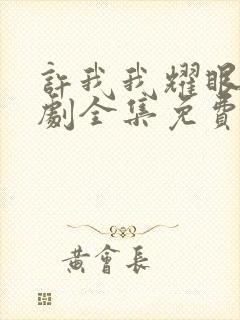 許我我耀眼
劇全集免費
黃會長